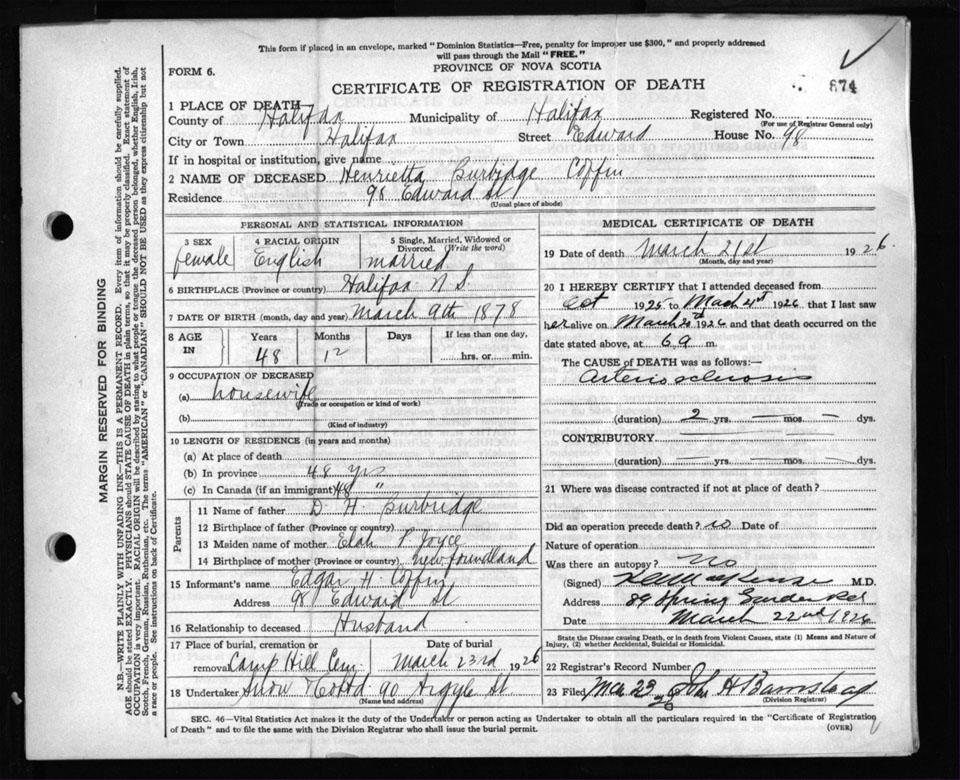 This form if placed in an envelope, marked "Dominion Statistics—Free, penalty for improper use $300," and properly addressed
will pass through the Mail "FREE."
PROVINCE OF NOVA SCOTIA
FORM 6.
CERTIFICATE OF REGISTRATION OF DEATH
874
1 PLACE OF DEATH—
County of Halifax Municipality of Halifax Registered No.
(For use of Registrar General only)
City or Town Halifax Street Edward House No. 98
If in hospital or institution, give name
2 NAME OF DECEASED Henrietta Burbidge Coffin
Residence 98 Edward St
(Usual place of abode)
PERSONAL AND STATISTICAL INFORMATION
3 SEX
female
4 RACIAL ORIGIN
English
5 Single, Married, Widowed or
Divorced. (Write the word)
married
6 BIRTHPLACE (Province or country) Halifax N S.
7 DATE OF BIRTH (month, day and year) March 9th 1878
8 AGE
IN
Years
48
Months
12
Days
If less than one day,
hrs. or min.
9 OCCUPATION OF DECEASED
(a) housewife
(Trade or occupation or kind of work)
(b)
(Kind of industry)
10 LENGTH OF RESIDENCE (in years and months)
(a) At place of death
(b) In province 48 yrs
(c) In Canada (if an immigrant) 48 "
Parents
11 Name of father D. H. Burbridge
12 Birthplace of father (Province or country)
13 Maiden name of mother Joyce
14 Birthplace of mother (Province or country) Newfoundland
15 Informant's name Edgar H. Coffin
Address 98 Edward St
16 Relationship to deceased Husband
17 Place of burial, cremation or
removal Camp Hill Cem
Date of burial
March 23rd 1926
18 Undertaker Snow 90 Argyle St
(Name and address)
MEDICAL CERTIFICATE OF DEATH
19 Date of death March 21st 1926.
(Month, day and year)
20 I HEREBY CERTIFY that I attended deceased from
Oct 1925 to March 21st 1926, that I last saw
her alive on March 20th 1926 and that death occurred on the
date stated above, at 6 9 m.
The CAUSE OF DEATH was as follows:—
Arterio sclerosis
(duration) 2 yrs. — mos. — dys.
CONTRIBUTORY.
(duration) — yrs. — mos. — dys.
21 Where was disease contracted if not at place of death?
Did an operation precede death? no Date of
Nature of operation
Was there an autopsy? no
(Signed) M.D.
Address 89 Spring Garden Rd
Date March 22nd 1926
State the Disease causing Death, or in death from Violent Causes, state (1) Means and Nature of
Injury, (2) whether Accidental, Suicidal or Homicidal.
22 Registrar's Record Number
23 Filed Mar 23 26 John H Barnstead
(Division Registrar)
SEC. 46—Vital Statistics Act makes it the duty of the Undertaker or person acting as Undertaker to obtain all the particulars required in the "Certificate of Registration
of Death" and to file the same with the Division Registrar who shall issue the burial permit.
(OVER)
MARGIN RESERVED FOR BINDING
N.B.—WRITE PLAINLY WITH UNFADING INK—THIS IS A PERMANENT RECORD. Every item of information should be carefully supplied.
AGE should be stated EXACTLY. PHYSICIANS should STATE CAUSE OF DEATH in plain terms, so that it may be properly classified. Exact statement of
OCCUPATION is very important. RACIAL ORIGIN will be described by stating to what people or tongue the deceased person belonged, whether English, Irish,
Scotch, French, German, Russian, Ruthenian, etc. The terms "AMERICAN" or "CANADIAN" SHOULD NOT BE USED as they express citizenship but not
a race or people. See instructions on back of Certificate.